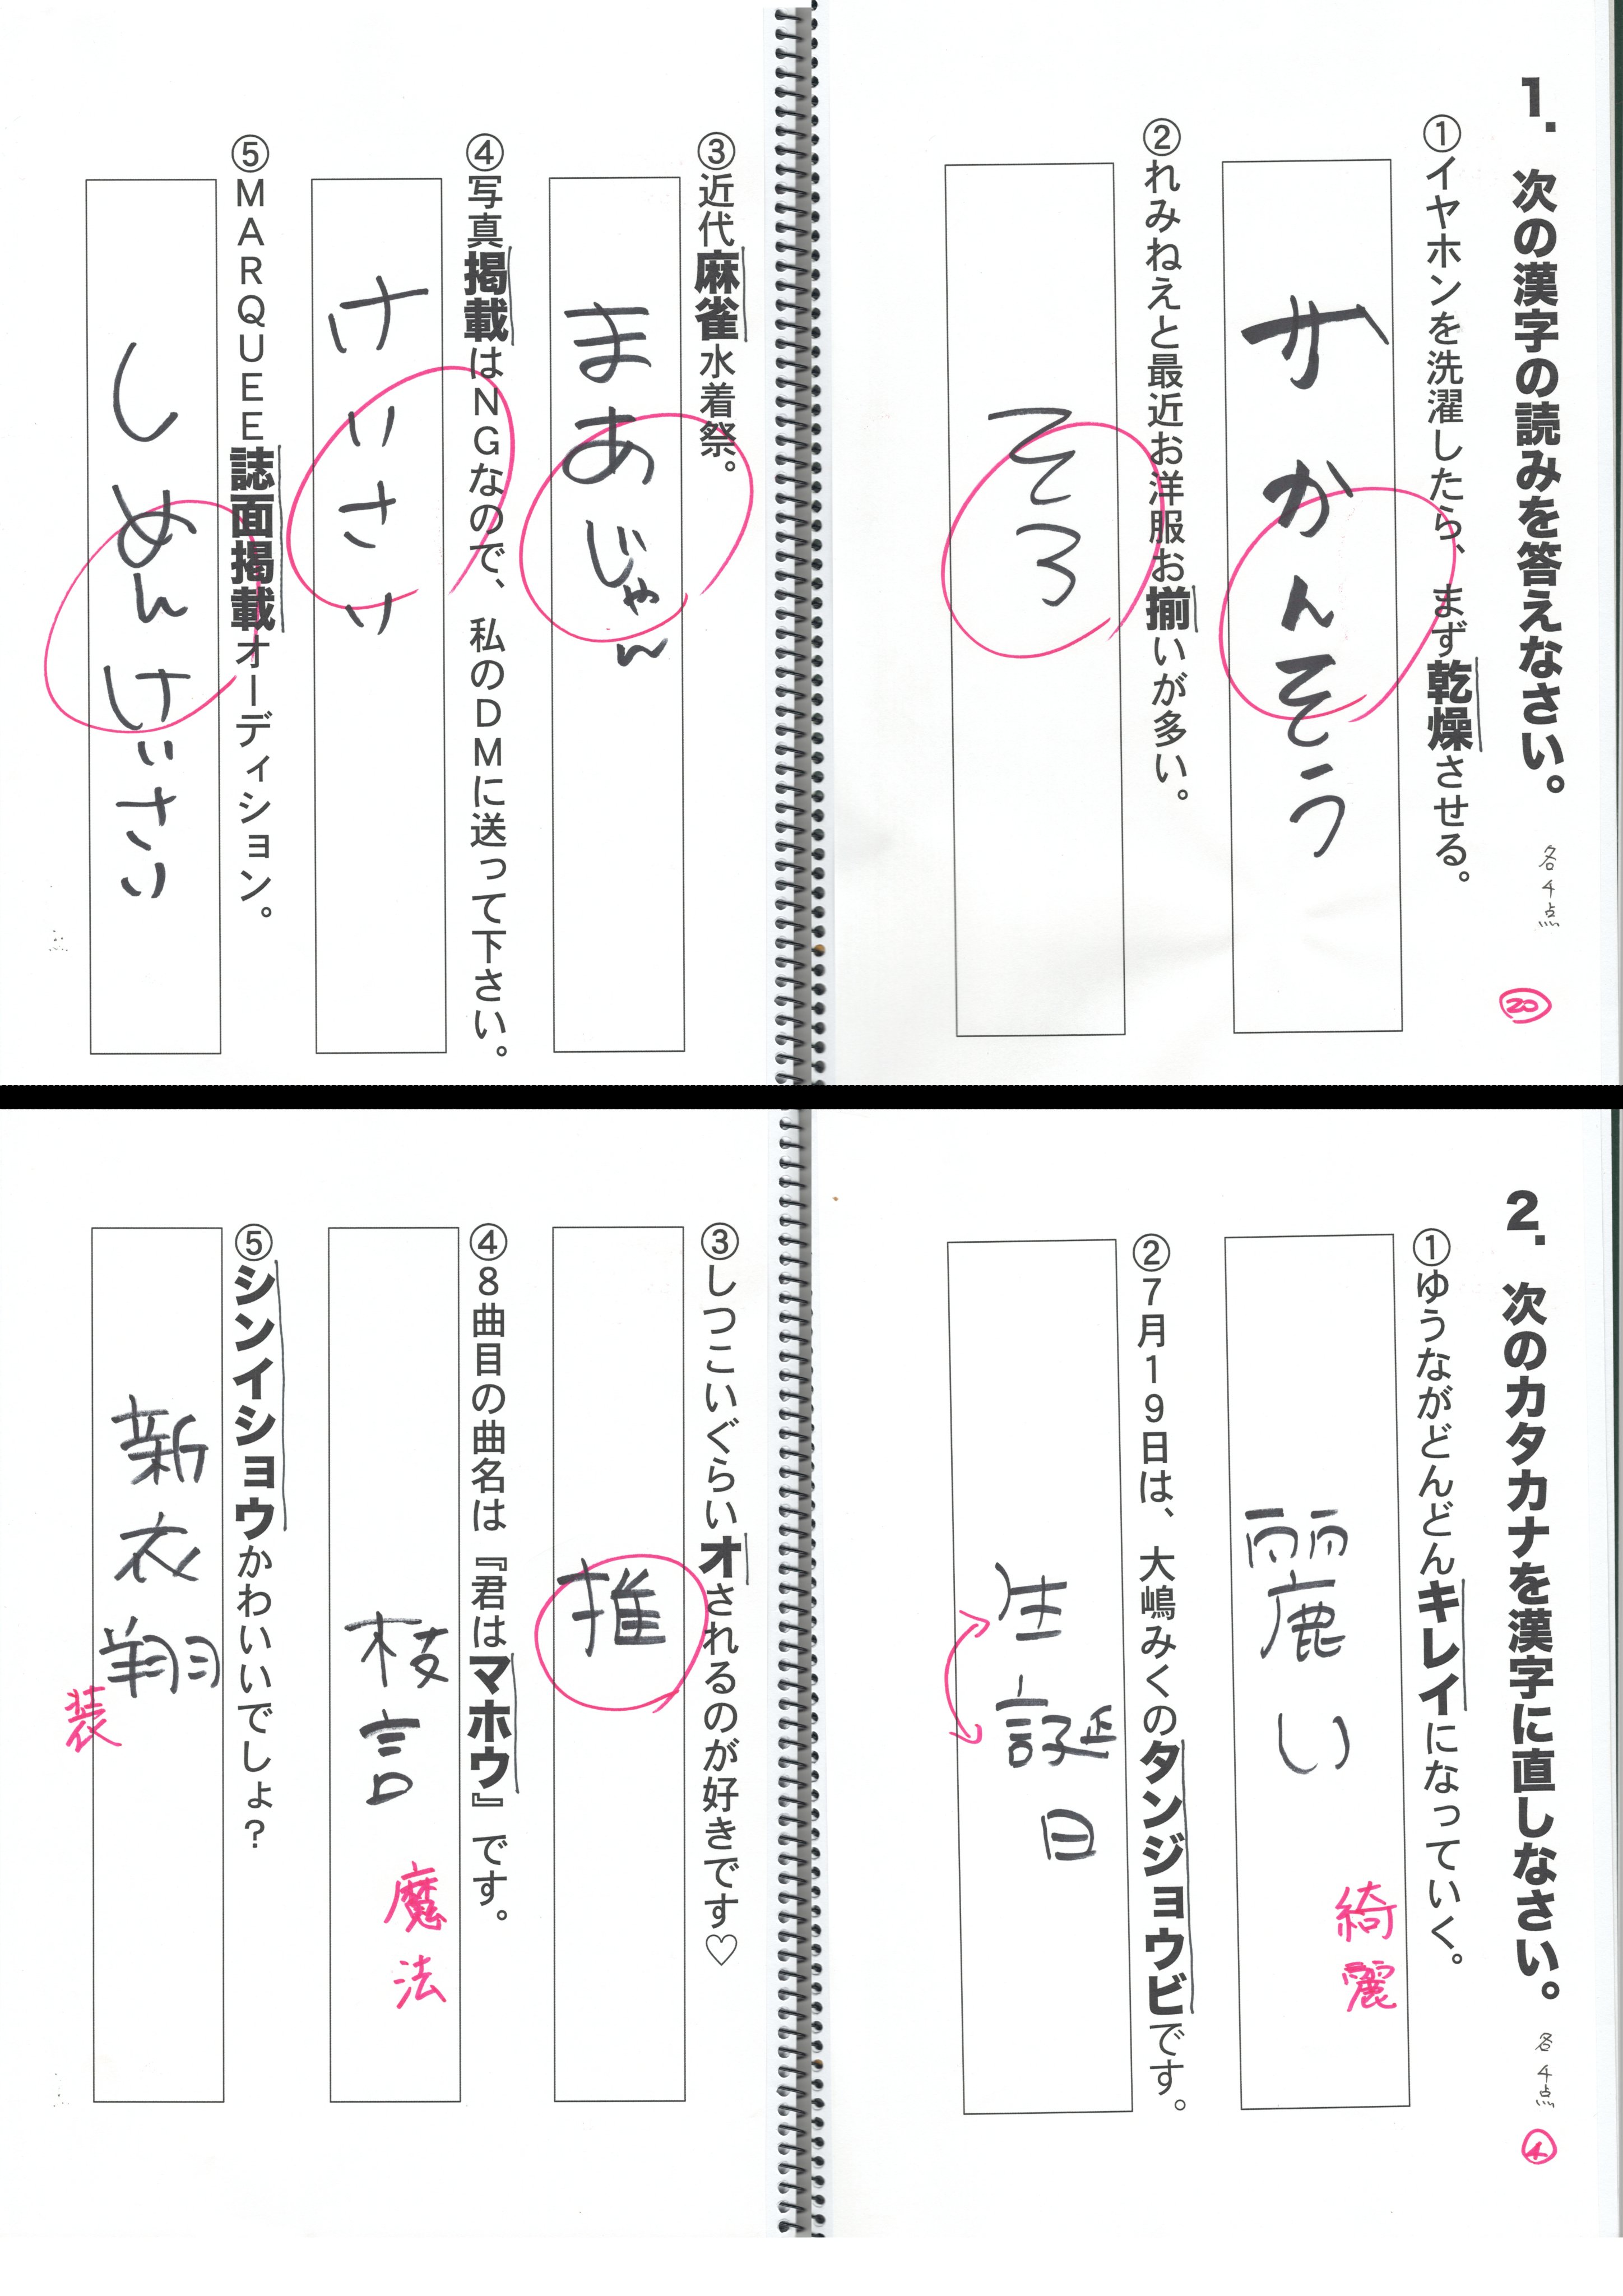 1. 次の漢字の読みを答えなさい。
各4点
20
①イヤホンを洗濯したら、まず乾燥させる。
かんそう
②れみねえと最近お洋服お揃いが多い。
そろ
③近代麻雀水着祭。
まあじゃん
④写真掲載はNGなので、私のDMに送って下さい。
けいさい
⑤MARQUEE誌面掲載オーディション。
しめんけいさい
2. 次のカタカナを漢字に直しなさい。
各4点
4
①ゆうながどんどんキレイになっていく。
麗い
綺麗
②7月19日は、大嶋みくのタンジョウビです。
生誕日
③しつこいぐらいオされるのが好きです♡
推
④8曲目の曲名は『君はマホウ』です。
魔法
⑤シンイショウかわいいでしょ?
新衣翔
装